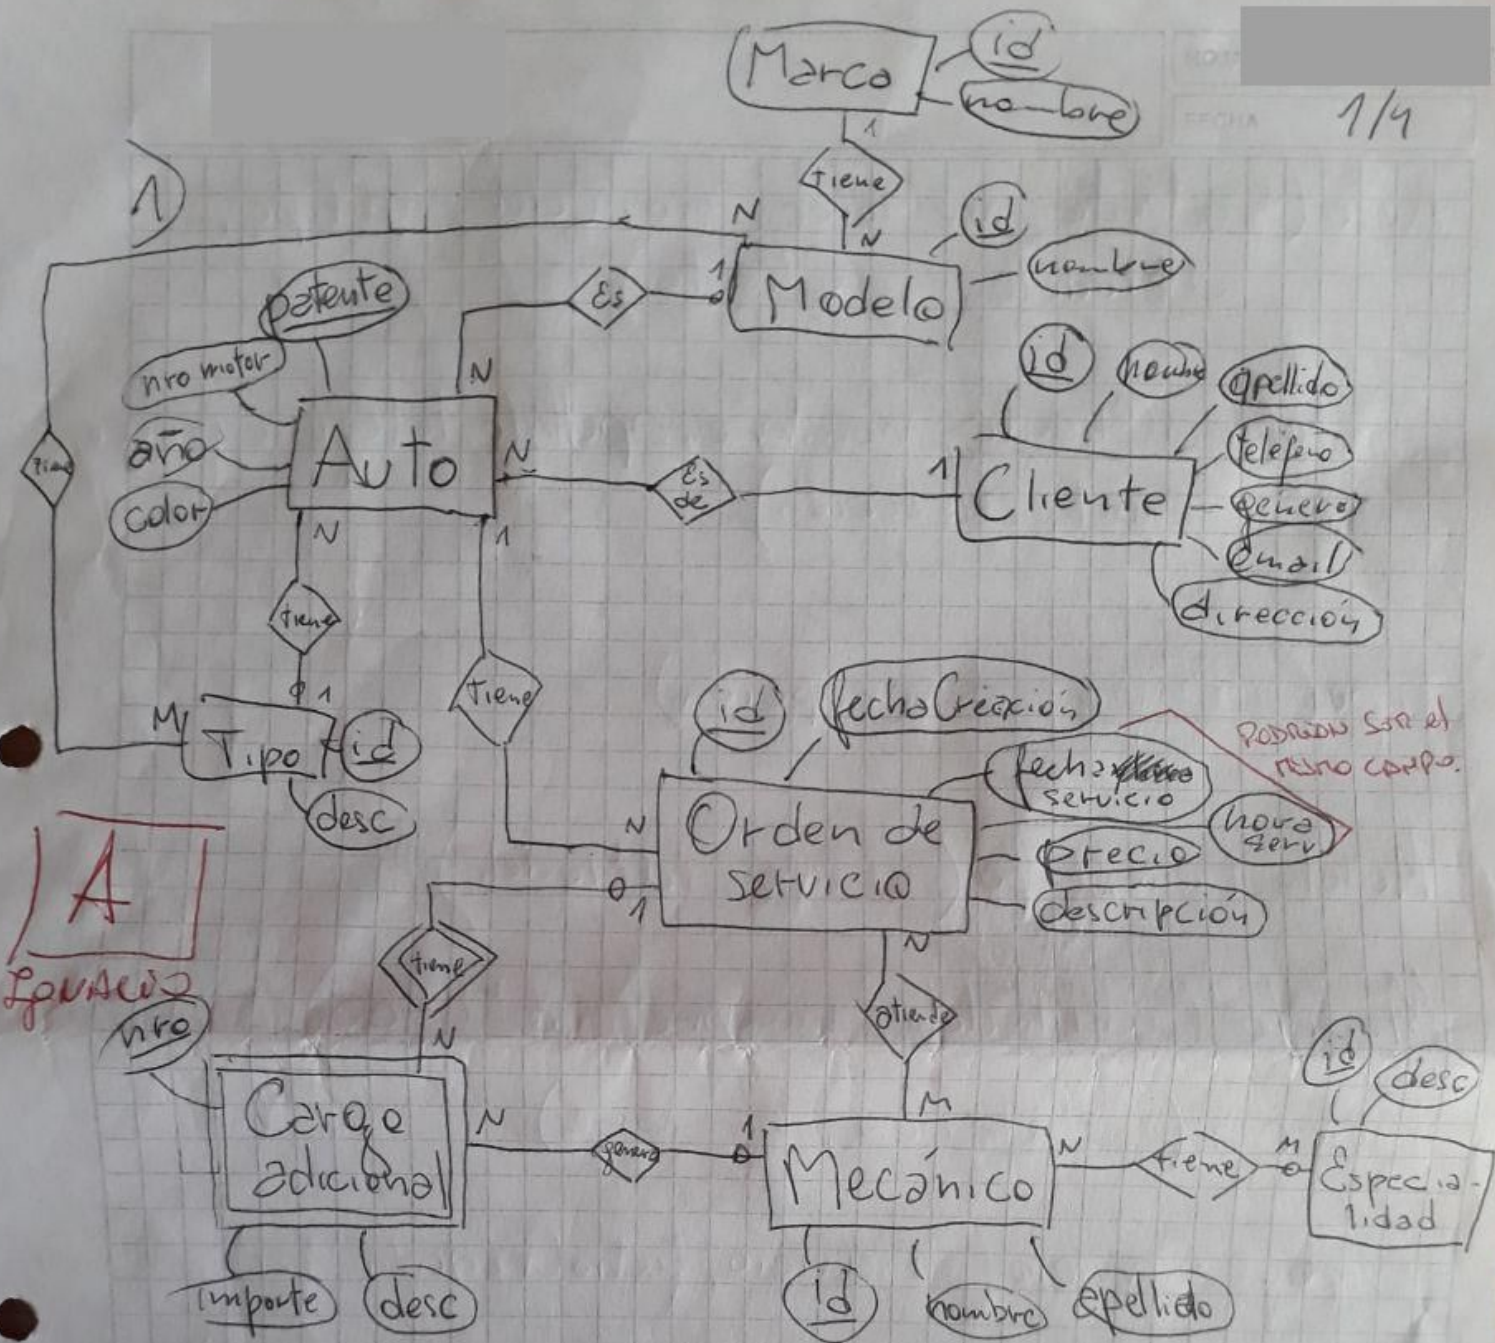 Marca
id
nombre
1/4
1
tiene
N
1)
N
id
nombre
Modelo
1
Es
N
patente
nro motor
año
color
Auto
N
Es de
1
Cliente
id
nombre
apellido
teléfono
género
email
dirección
tiene
N
tiene
1
1
tiene
M
Tipo
id
desc
N
Orden de
servicio
id
fechaCreación
fecha
servicio
hora
serv
precio
descripción
PODRIAN SER el
MISMO CAMPO.
A
IGNACIO
1
tiene
N
N
atiende
M
nro
Cargo
adicional
importe
desc
N
genera
1
Mecánico
id
nombre
apellido
N
tiene
M
Especia-
lidad
id
desc